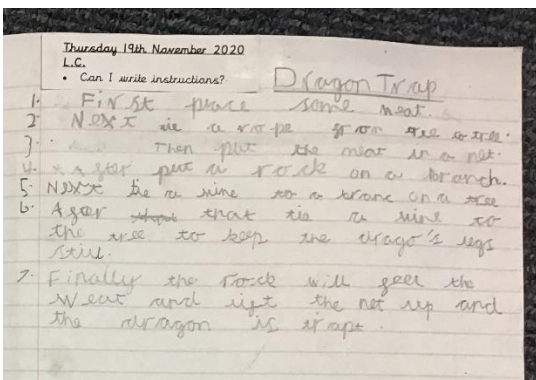 Thursday 19th November 2020
L.C.
• Can I write instructions?
Dragon Trap
1. First place some meat.
2. Next tie a rope from tree to tree.
3. Then plut the meat in a net.
4. After put a rock on a branch.
5. Next tie a vine to a branc on a tree
6. After that tie a vine to
the tree to keep the drago's legs
still.
7. Finally the rock will feel the
weat and lift the net up and
the dragon is trapt.